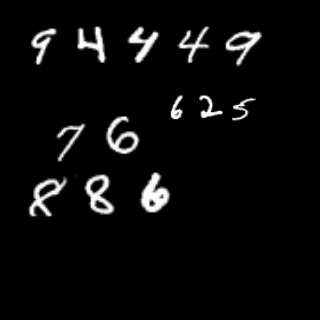 94449
625
76
886